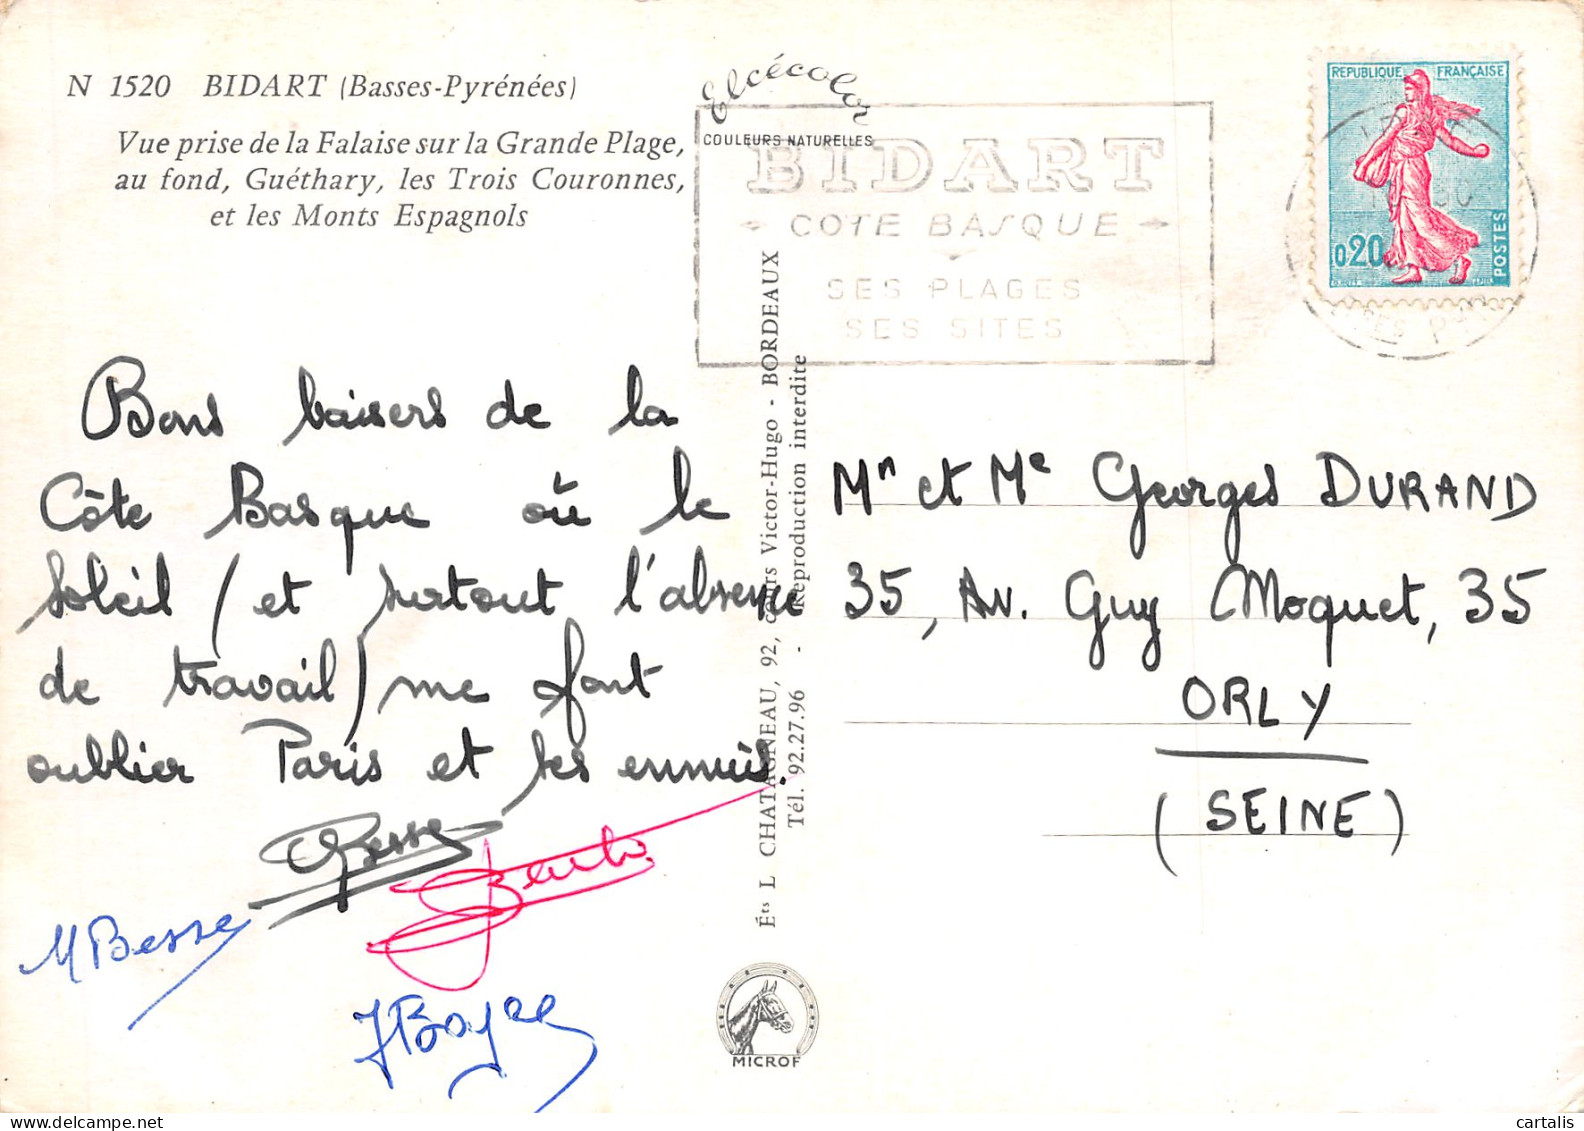 N 1520 BIDART (Basses-Pyrénées)
Vue prise de la Falaise sur la Grande Plage,
au fond, Guéthary, les Trois Couronnes,
et les Monts Espagnols
Elcécolor
COULEURS NATURELLES
BIDART
COTE BASQUE
SES PLAGES
SES SITES
REPUBLIQUE FRANÇAISE
0,20
POSTES
Bons baisers de la
Côte Basque où le
soleil (et surtout l'absence
de travail) me font
oublier Paris et ses ennuis.
Besse
M Besse
JBoyer
Éts L CHATAGNEAU, 92, cours Victor-Hugo - BORDEAUX
Tél. 92.27.96 - Reproduction interdite
MICROF
Mr et Me Georges DURAND
35, Av. Guy Moquet, 35
ORLY
(SEINE)
delcampe.net
cartalis